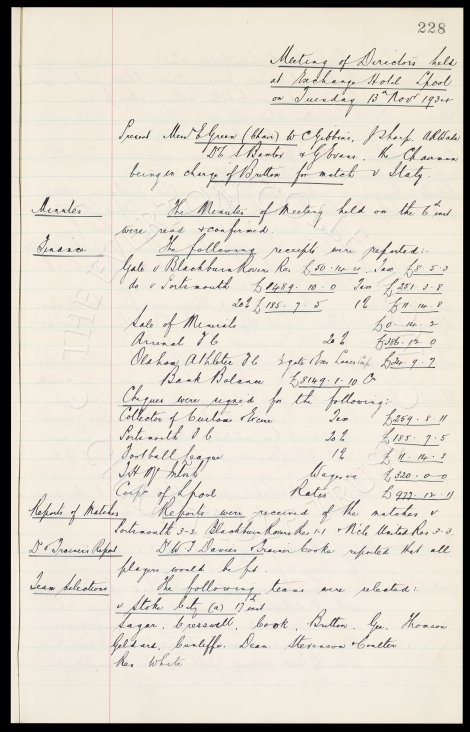 228
Meeting of Directors held
at Exchange Hotel Lpool
on Tuesday 13th Novr 1934
Present Messrs E Green (Chair) W C Gibbins, J Sharp, A R Wade
Dr C S Baxter & G Evans, the Chairman
being in charge of Britton for match v Italy.
Minutes The Minutes of Meeting held on the 6th inst
were read & confirmed.
Finance The following receipts were reported:
Gate v Blackburn Rovers Res £50.14.0 Tax £8.5.3
do v Portsmouth £1489.10.0 Tax £251.3.8
20% £155.7.5 1% £11.14.8
Sale of Minerals £0.14.2
Arsenal F C 20% £386.12.0
Oldham Athletic F C
Bank Balance £8149.1.10 Or
Cheques were signed for the following:
Collector of Customs & Excise Tax £259.8.11
Portsmouth F C 20% £155.7.5
Football League 1% £11.14.8
T H McIntosh Wages &c £320.0.0
Corpn of Lpool Rates £977.12.11
Reports of Matches Reports were received of the matches v
Portsmouth 3-2 Blackburn Rovers Res 1-1 & N'cle United Res 3-3.
Dr & Trainers Report Dr W J Davies & Trainer Cooke reported that all
players would be fit.
Team Selections The following teams were selected:
v Stoke City (a) 17th inst
Sagar, Cresswell, Cook, Britton, Gee, Thomson
Geldard, Cunliffe, Dean, Stevenson & Coulter.
Res White